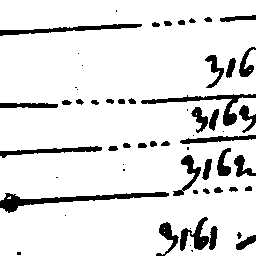 316
3163
3162
3161